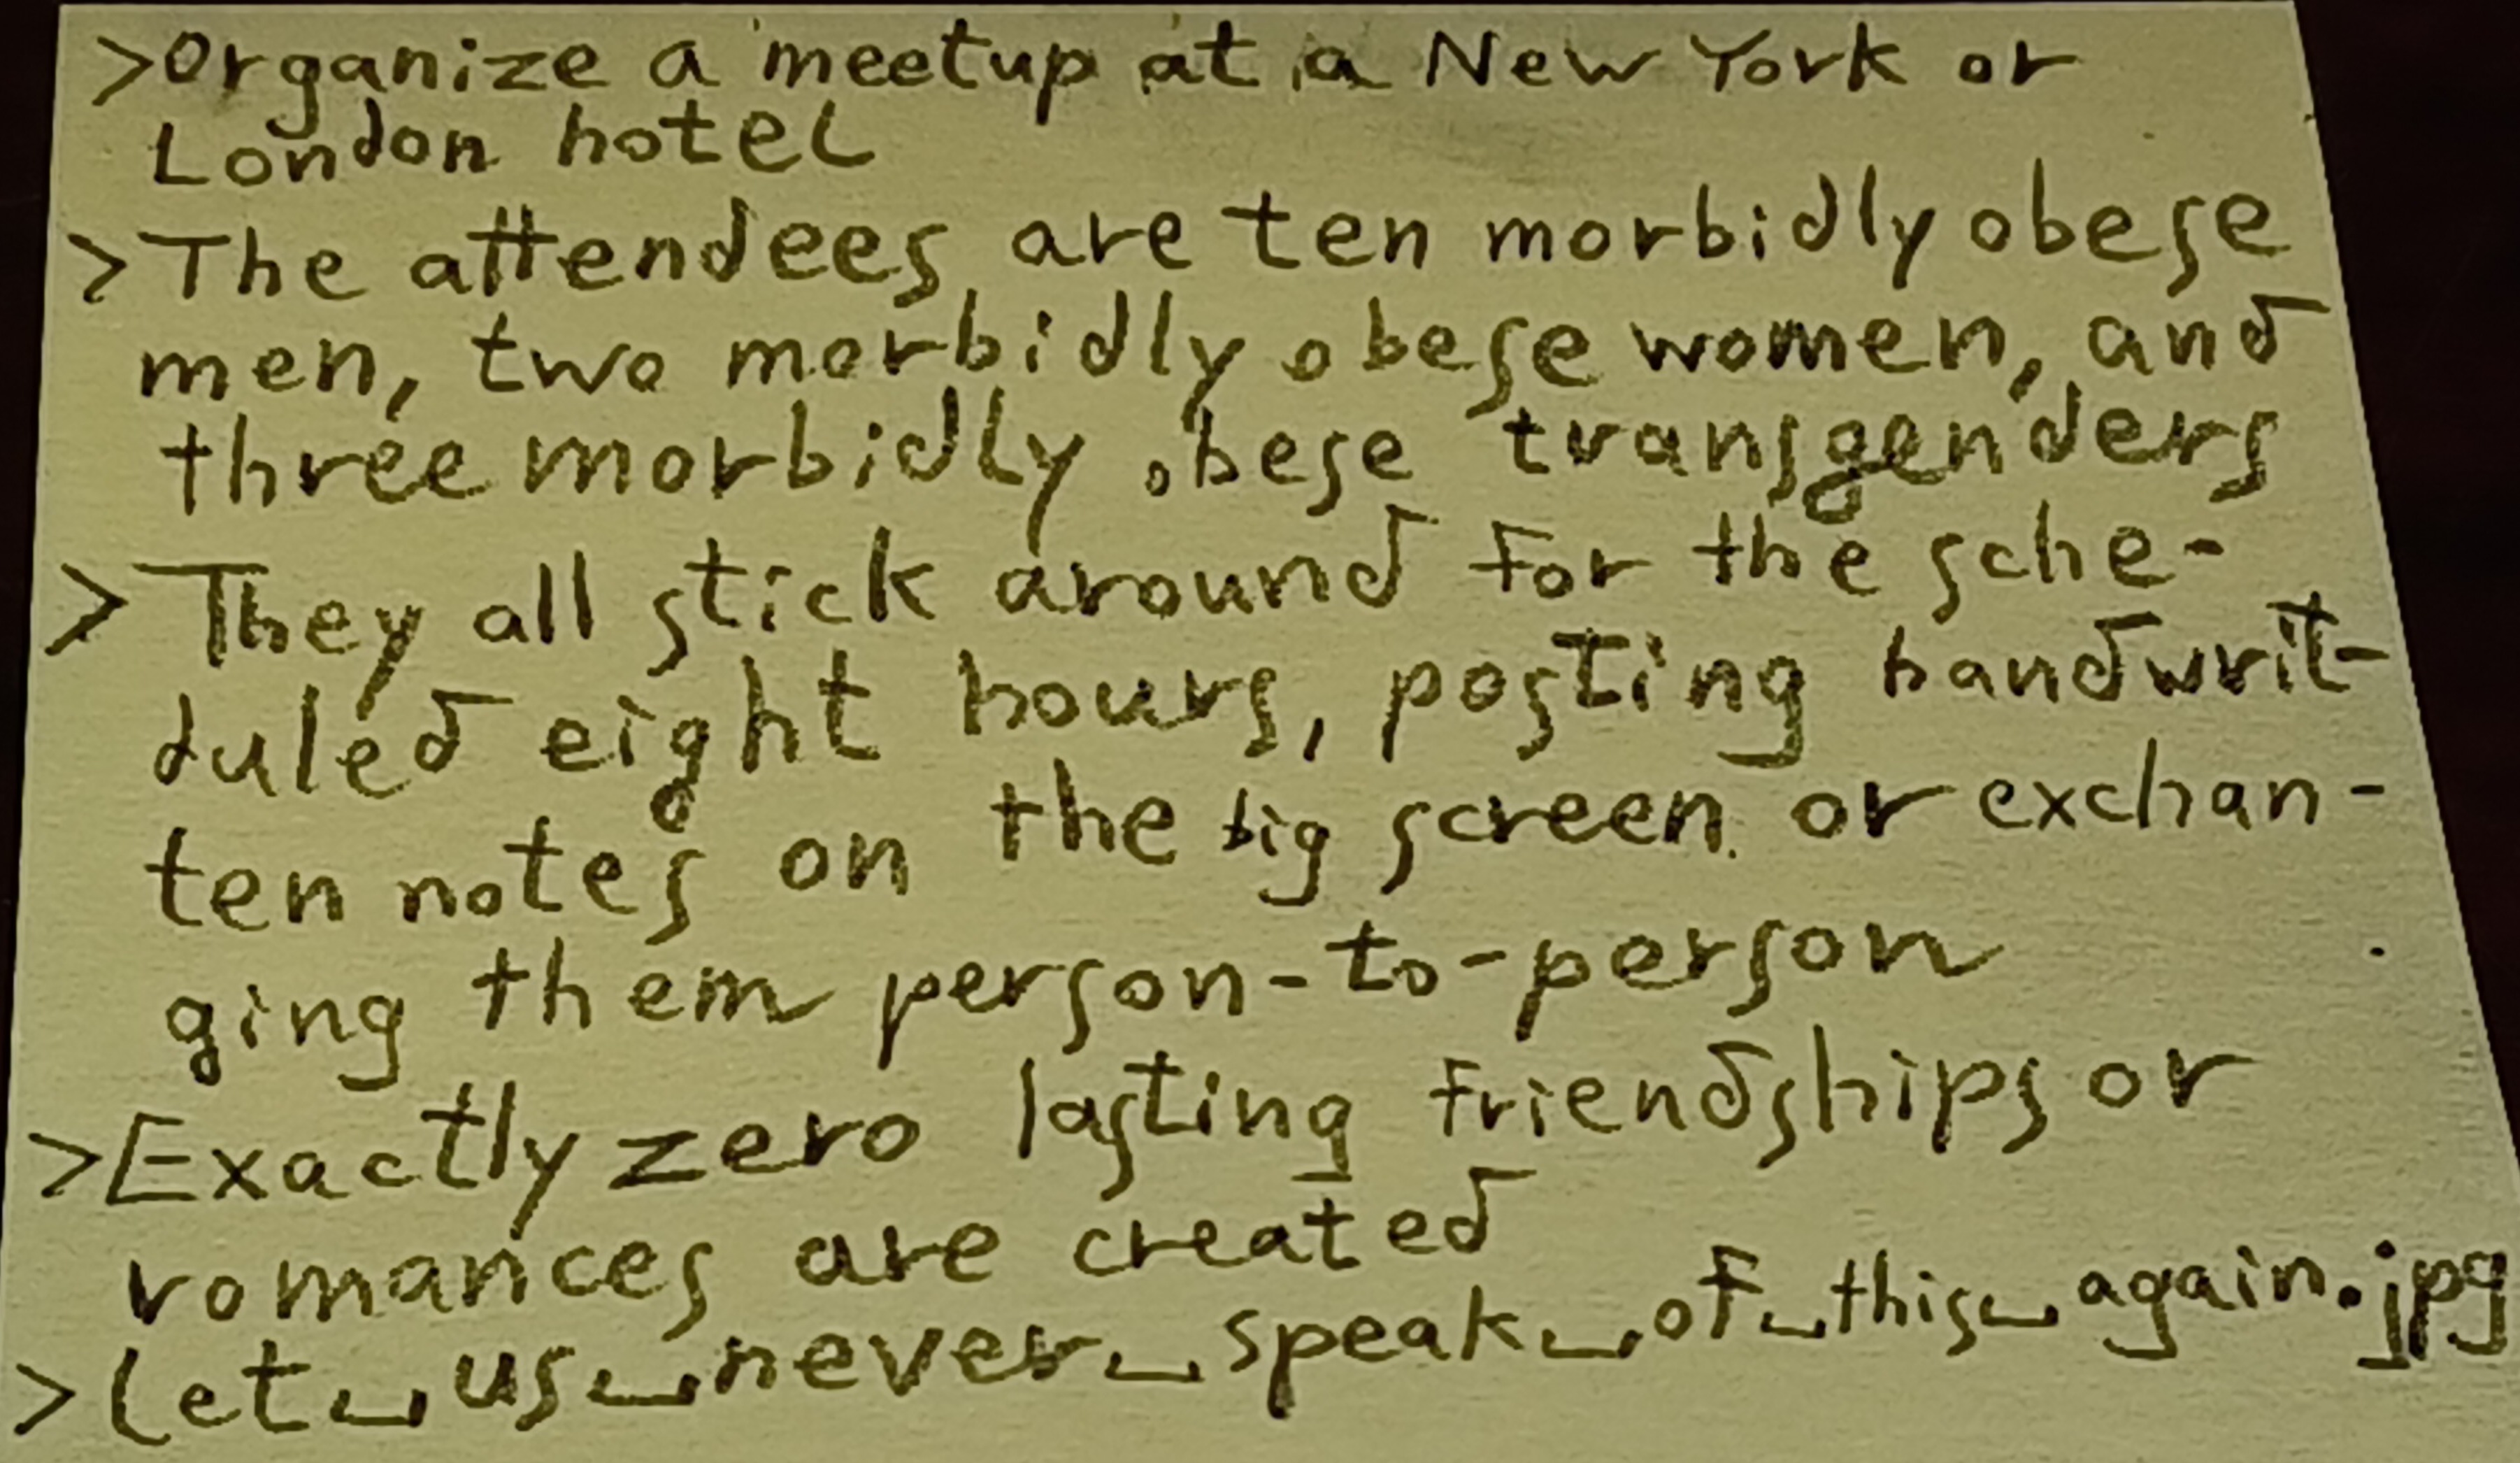 >Organize a meetup at a New York or
London hotel
>The attendees are ten morbidly obese
men, two morbidly obese women, and
three morbidly obese transgenders
>They all stick around for the sche-
duled eight hours, posting handwrit-
ten notes on the big screen or exchan-
ging them person-to-person
>Exactly zero lasting friendships or
romances are created
>Let␣us␣never␣speak␣of␣this␣again.jpg